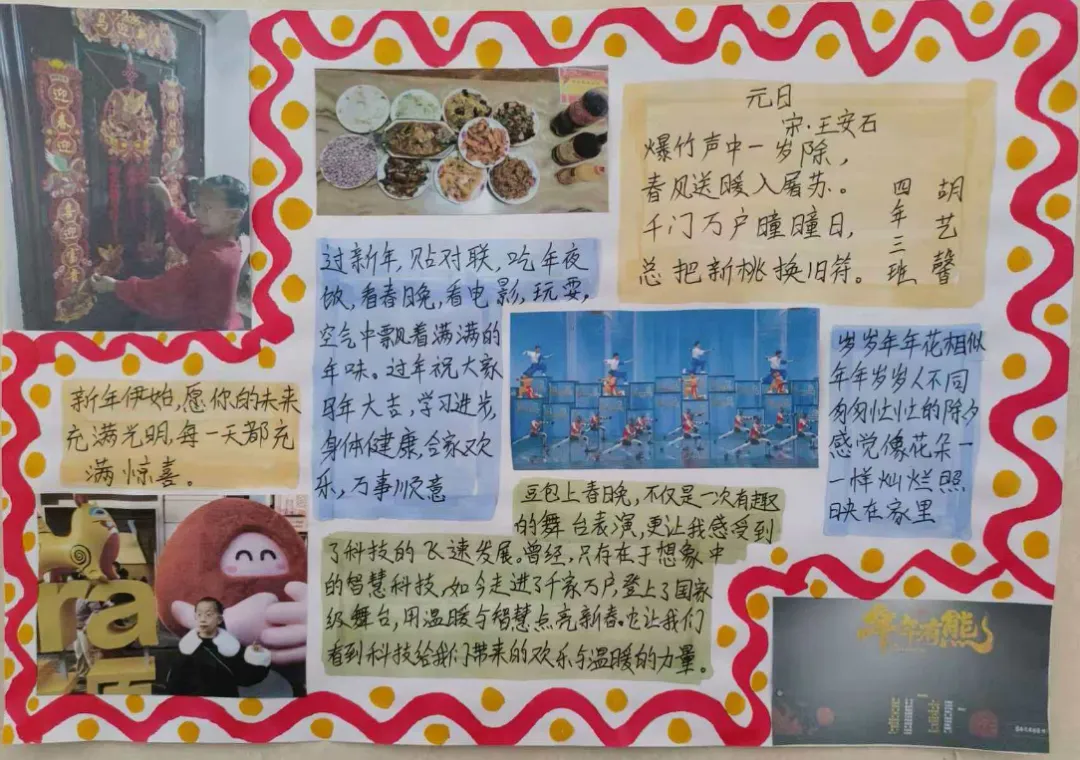 元日
宋·王安石
爆竹声中一岁除，
春风送暖入屠苏。
千门万户瞳瞳日，
总把新桃换旧符。
四年三班
胡艺馨
过新年，贴对联，吃年夜
饭，看春晚，看电影，玩耍，
空气中飘着满满的
年味。过年祝大家
马年大吉，学习进步，
身体健康，合家欢
乐，万事顺意
新年伊始，愿你的未来
充满光明，每一天都充
满惊喜。
岁岁年年花相似
年年岁岁人不同
匆匆忙忙的除夕
感觉像花朵一
一样灿烂照
映在家里
豆包上春晚，不仅是一次有趣
的舞台表演，更让我感受到
了科技的飞速发展。曾经，只存在于想象中
的智慧科技，如今走进了千家万户，登上了国家
级舞台，用温暖与智慧点亮新春。它让我们
看到科技给我们带来的欢乐与温暖的力量。
迎春迎喜迎富贵
ra
年年有熊